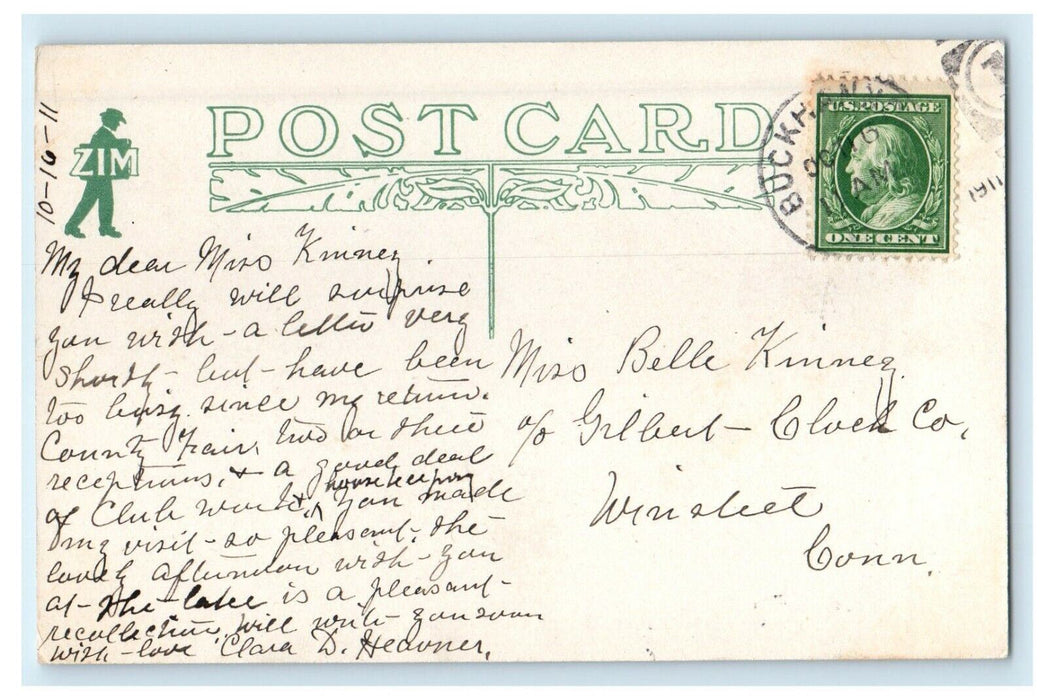 POST CARD
ZIM
10-16-11
BUCKHANNON
OCT 16
AM
1911
U.S. POSTAGE
ONE CENT
My dear Miss Kinney
I really will surprise
you with - a letter very
shortly - but - have been
too busy since my return.
County Fair, two or three
receptions, & a good deal
of Club work & housekeeping You made
my visit - so pleasant, the
lovely afternoon with - you
at - the - lake is a pleasant -
recollection, will write you soon
with - love Clara D. Heavner,
Miss Belle Kinney
c/o Gilbert - Clock Co,
Winsted
Conn.